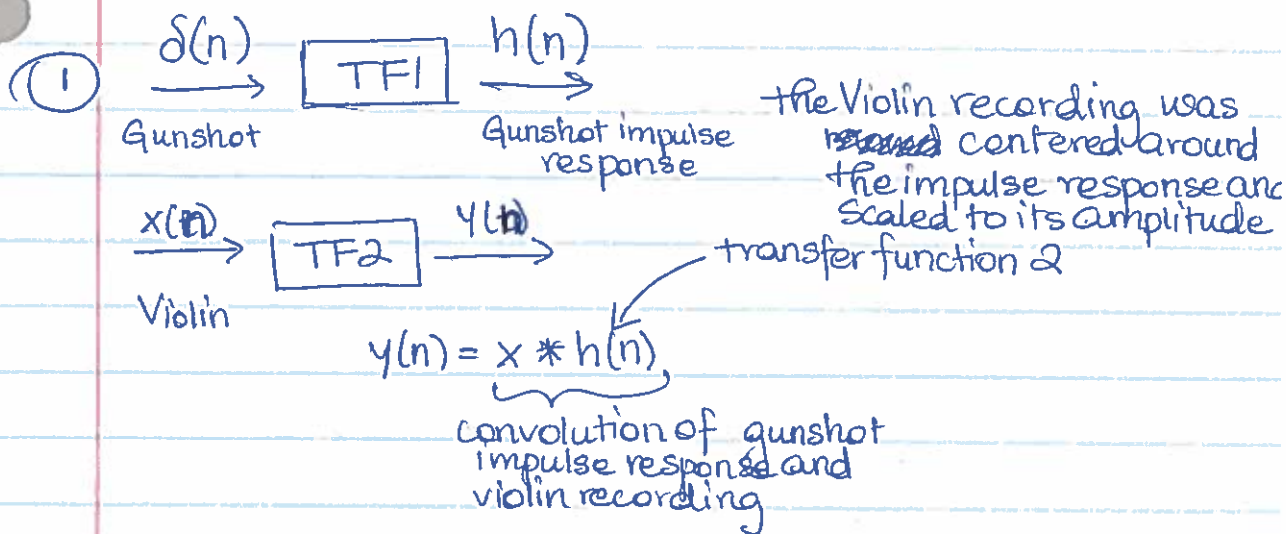 1
δ(n)
TF1
h(n)
Gunshot
Gunshot impulse
response
the Violin recording was
centered around
the impulse response and
scaled to its amplitude
x(n)
TF2
y(n)
Violin
transfer function 2
y(n) = x * h(n)
convolution of gunshot
impulse response and
violin recording